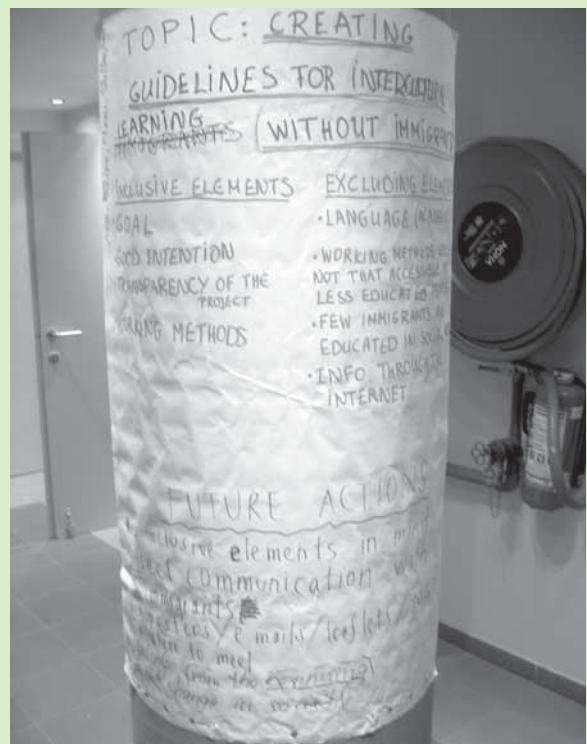 TOPIC: CREATING
GUIDELINES FOR INTERCULTURAL
LEARNING
IMMIGRANTS (WITHOUT IMMIGRANTS
INCLUSIVE ELEMENTS
GOAL
GOOD INTENTION
TRANSPARENCY OF THE
PROJECT
WORKING METHODS
EXCLUDING ELEMENTS
• LANGUAGE (ACADEMIC
• WORKING METHODS
NOT THAT ACCESSIBLE
LESS EDUCATED
• FEW IMMIGRANTS
EDUCATED IN SOCIAL
• INFO THROUGH
INTERNET
FUTURE ACTIONS
inclusive elements in mind
direct communication with
immigrants
posters/e mails/leaflets/
to meet
from the
NOHA